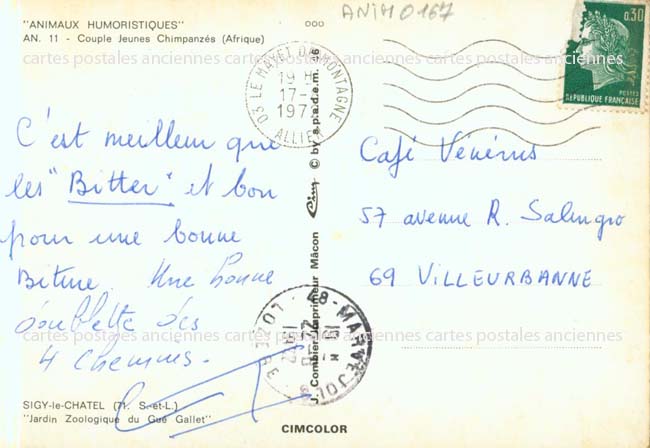 "ANIMAUX HUMORISTIQUES"
AN. 11 - Couple Jeunes Chimpanzés (Afrique)
ANIM 0167
0,30
POSTES
REPUBLIQUE FRANÇAISE
03 LE MAYET DE MONTAGNE
19 H
17-
197
ALLIER
cartes postales anciennes cartes postales anciennes cartes postales anciennes cartes postales anciennes
C'est meilleur que
les "Bitter" et bon
pour une bonne
Biture. Une bonne
doublette des
4 chemins.
Café Vénérus
57 avenue R. Salengro
69 VILLEURBANNE
J. Combier Imprimeur Mâcon Cim © by s.p.a.d.e.m. 

48-MARVEJOLS
LOZERE
cartes postales anciennes cartes postales anciennes cartes postales anciennes cartes postales anciennes
SIGY-le-CHATEL (71. S.-et-L.)
"Jardin Zoologique du Gué Gallet"
CIMCOLOR